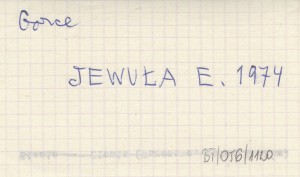 Gorce
JEWUŁA E. 1974
BI/OJG/1120